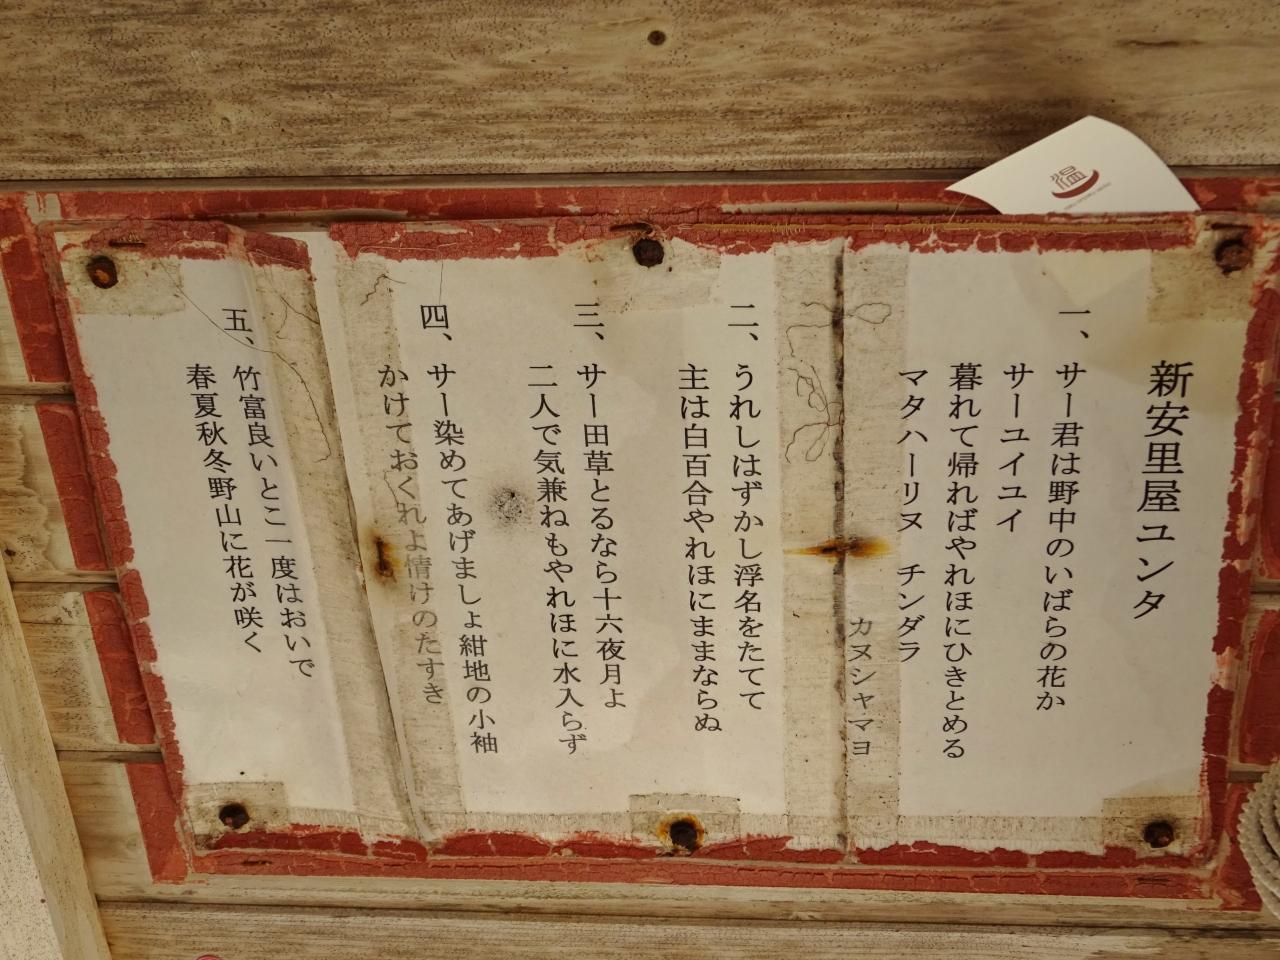 新安里屋ユンタ
一、サー君は野中のいばらの花か
サーユイユイ
暮れて帰ればやれほにひきとめる
マタハーリヌ　チンダラ
カヌシャマヨ
二、うれしはずかし浮名をたてて
主は白百合やれほにままならぬ
三、サー田草とるなら十六夜月よ
二人で気兼ねもやれほに水入らず
四、サー染めてあげましょ紺地の小袖
かけておくれよ情けのたすき
五、竹富良いとこ一度はおいで
春夏秋冬野山に花が咲く